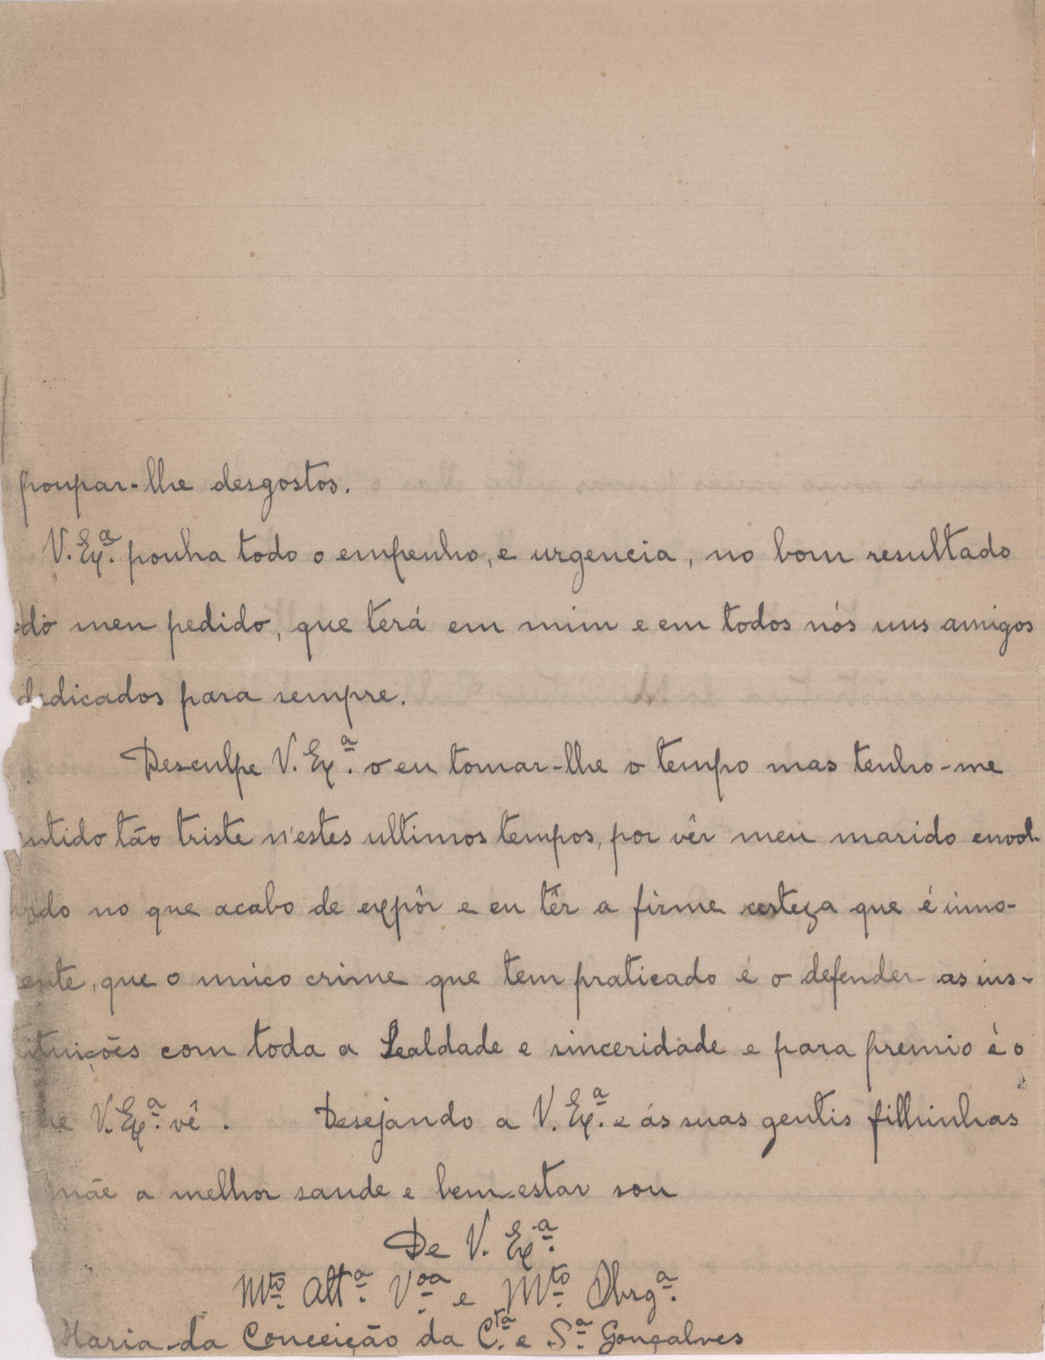 poupar-lhe desgostos.
V. Exª. ponha todo o empenho, e urgencia, no bom resultado
do meu pedido, que terá em mim e em todos nós uns amigos
dedicados para sempre.
Desculpe V. Exª. o eu tomar-lhe o tempo mas tenho-me
ntido tão triste n'estes ultimos tempos, por vêr meu marido envol-
vido no que acabo de expôr e eu têr a firme certeza que é inno-
ente, que o unico crime que tem praticado é o defender as ins-
ituições com toda a Lealdade e sinceridade e para premio é o
ue V. Exª. vê. Desejando a V. Exª. e ás suas gentis filhinhas
mãe a melhor saude e bem-estar sou
De V. Exª.
Mto. Attª. Voª. e Mto. Obrgª.
Maria da Conceição da Cta. e Sª. Gonçalves